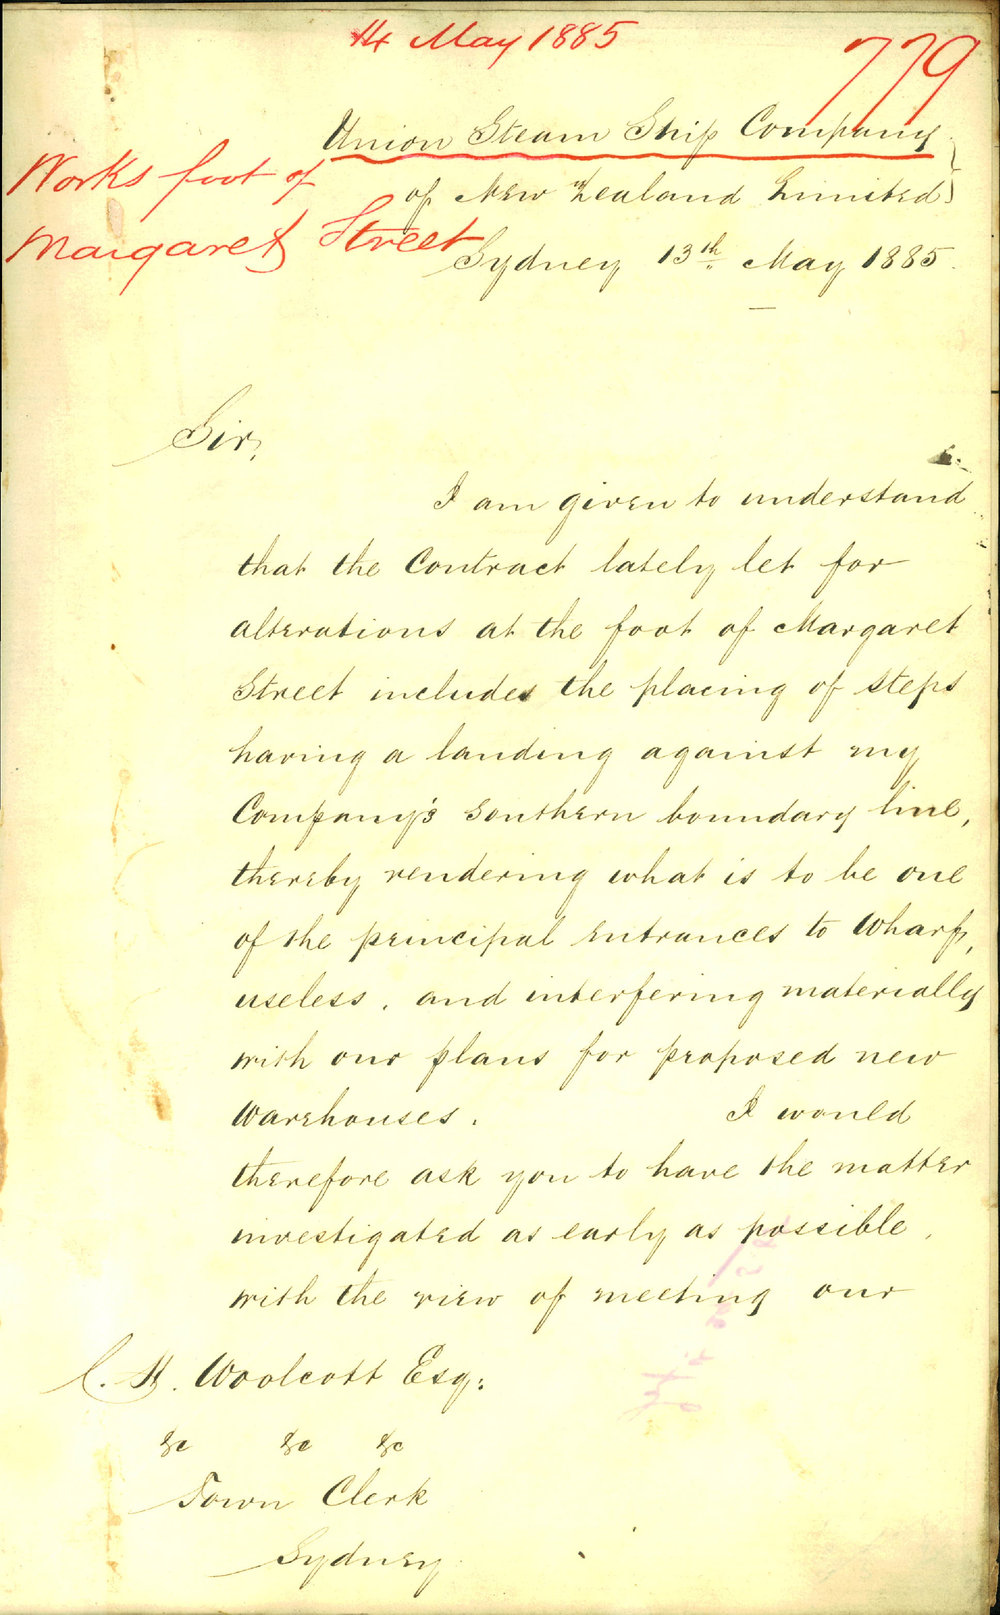 14 May 1885
779
Works foot of
Margaret Street
Union Steam Ship Company
of New Zealand Limited
Sydney 13th May 1885.
Sir,
I am given to understand
that the Contract lately let for
alterations at the foot of Margaret
Street includes the placing of steps
having a landing against my
Company's Southern boundary line,
thereby rendering what is to be one
of the principal entrances to Wharf,
useless, and interfering materially
with our plans for proposed new
Warehouses. I would
therefore ask you to have the matter
investigated as early as possible,
with the view of meeting our
C. H. Woolcott Esq:
&c &c &c
Town Clerk
Sydney